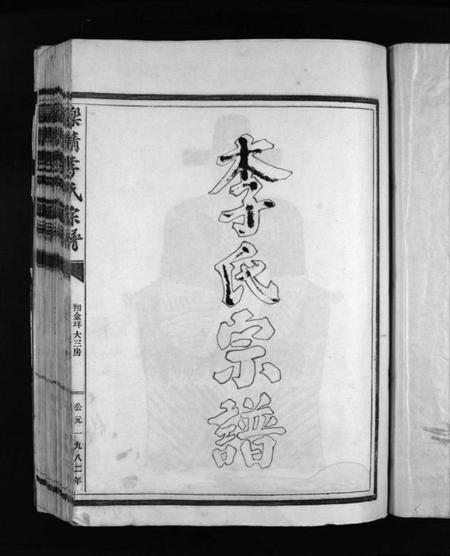 李氏宗譜
樂清李氏宗譜
翔金垟大三房
公元一九八一年